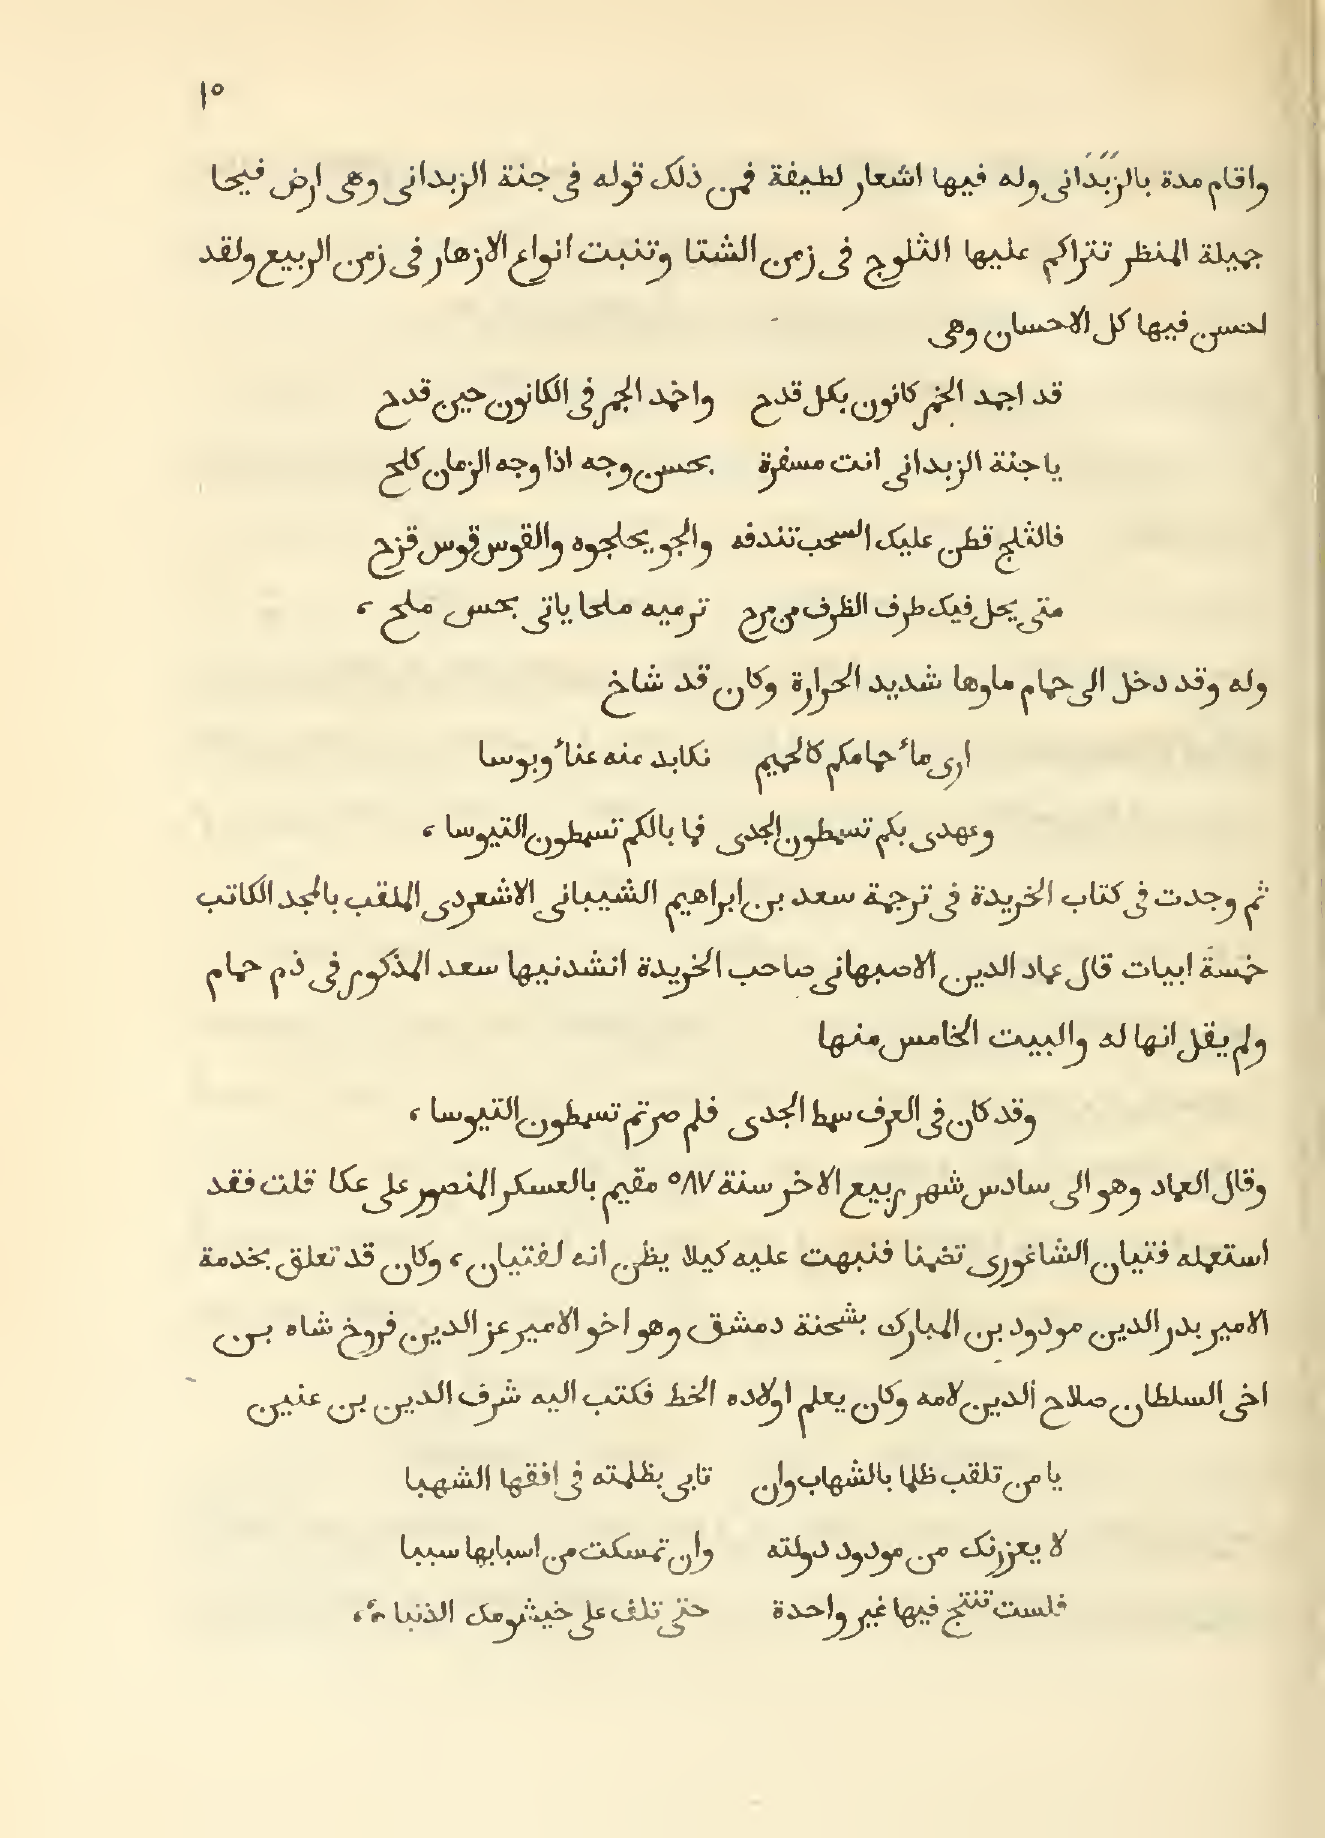 ١٥
واقام مدة بالزَبَدَانى وله فيها اشعار لطيفة فمن ذلك قوله فى جنة الزبدانى وهى ارض فيحا
جميلة المنظر تتراكم عليها الثلوج فى زمن الشتا وتنبت انواع الازهار فى زمن الربيع ولقد
احسن فيها كل الاحسان وهى
قد اجمد الخمر كانون بكل قدح واخمد الجمر فى الكانون حين قدح
يا جنة الزبدانى انت مسفرة بحسن وجه اذا وجه الزمان كلح
فالثلج قطن عليك السحب تندفه والجو يحلجوه والقوس قوس قزح
متى يحل فيك طرف الظرف من مرح ترميه ملحا ياتى بحس ملح ،
وله وقد دخل الى حمام ماوها شديد الحرارة وكان قد شاخ
ارى ماء حمامكم كالحميم نكابد عنه عناء وبوسا
وعهدى بكم تسمطون الجدى فما بالكم تسمطون التيوسا ،
ثم وجدت فى كتاب الخريدة فى ترجمة سعد بن ابراهيم الشيبانى الاشعردى الملقب بالمجد الكاتب
خمسةَ ابيات قال عماد الدين الاصبهانى صاحب الخريدة انشدنيها سعد المذكور فى ذم حمام
ولم يقل انها له والبيت الخامس منها
وقد كان فى العرف سمط الجدى فلم صرتم تسمطون التيوسا ،
وقال العماد وهو الى سادس شهر ربيع الاخر سنة ٥٨٧ مقيم بالعسكر المنصور على عكا قلت فقد
استعمله فتيان الشاغورى تضمنا فنبهت عليه كيلا يظن انه لفتيان ، وكان قد تعلق بخدمة
الامير بدر الدين مودود بن المبارك بشحنة دمشق وهو اخو الامير عز الدين فروخ شاه بن
اخى السلطان صلاح الدين لامه وكان يعلم اولاده الخط فكتب اليه شرف الدين بن عنين
يا من تلقب ظلما بالشهاب وان تابى بظلمته فى افقها الشهبا
لا يعزرنك من مودود دولته وان تمسكت من اسبابها سببا
فلست تنتج فيها غير واحدة حتى تلف على خيشومك الذنبا